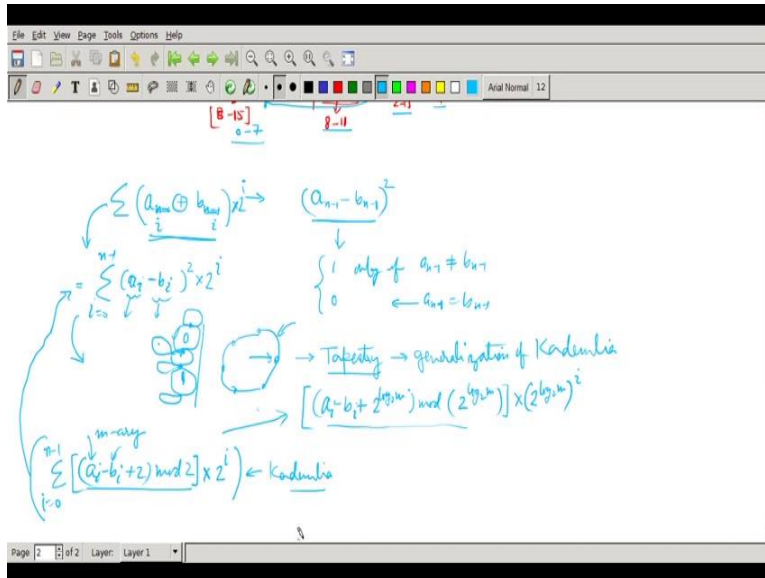 File Edit View Page Tools Options Help
Arial Normal 12
[8-15]
0-7
8-11
∑ (a_i ⊕ b_i) × 2^i → (a_{n-1} - b_{n-1})^2
= ∑_{i=0}^{n-1} (a_i - b_i)^2 × 2^i
{ 1 only if a_{n-1} ≠ b_{n-1}
0 ← a_{n-1} = b_{n-1}
0
1
→ Tapestry → generalization of Kademlia
[(a_i - b_i + 2^{log_2 m}) mod (2^{log_2 m})] × (2^{log_2 m})^i
m-ary
(∑_{i=0}^{n-1} [(a_i - b_i + 2) mod 2] × 2^i) ← Kademlia
Page 2 of 2 Layer: Layer 1